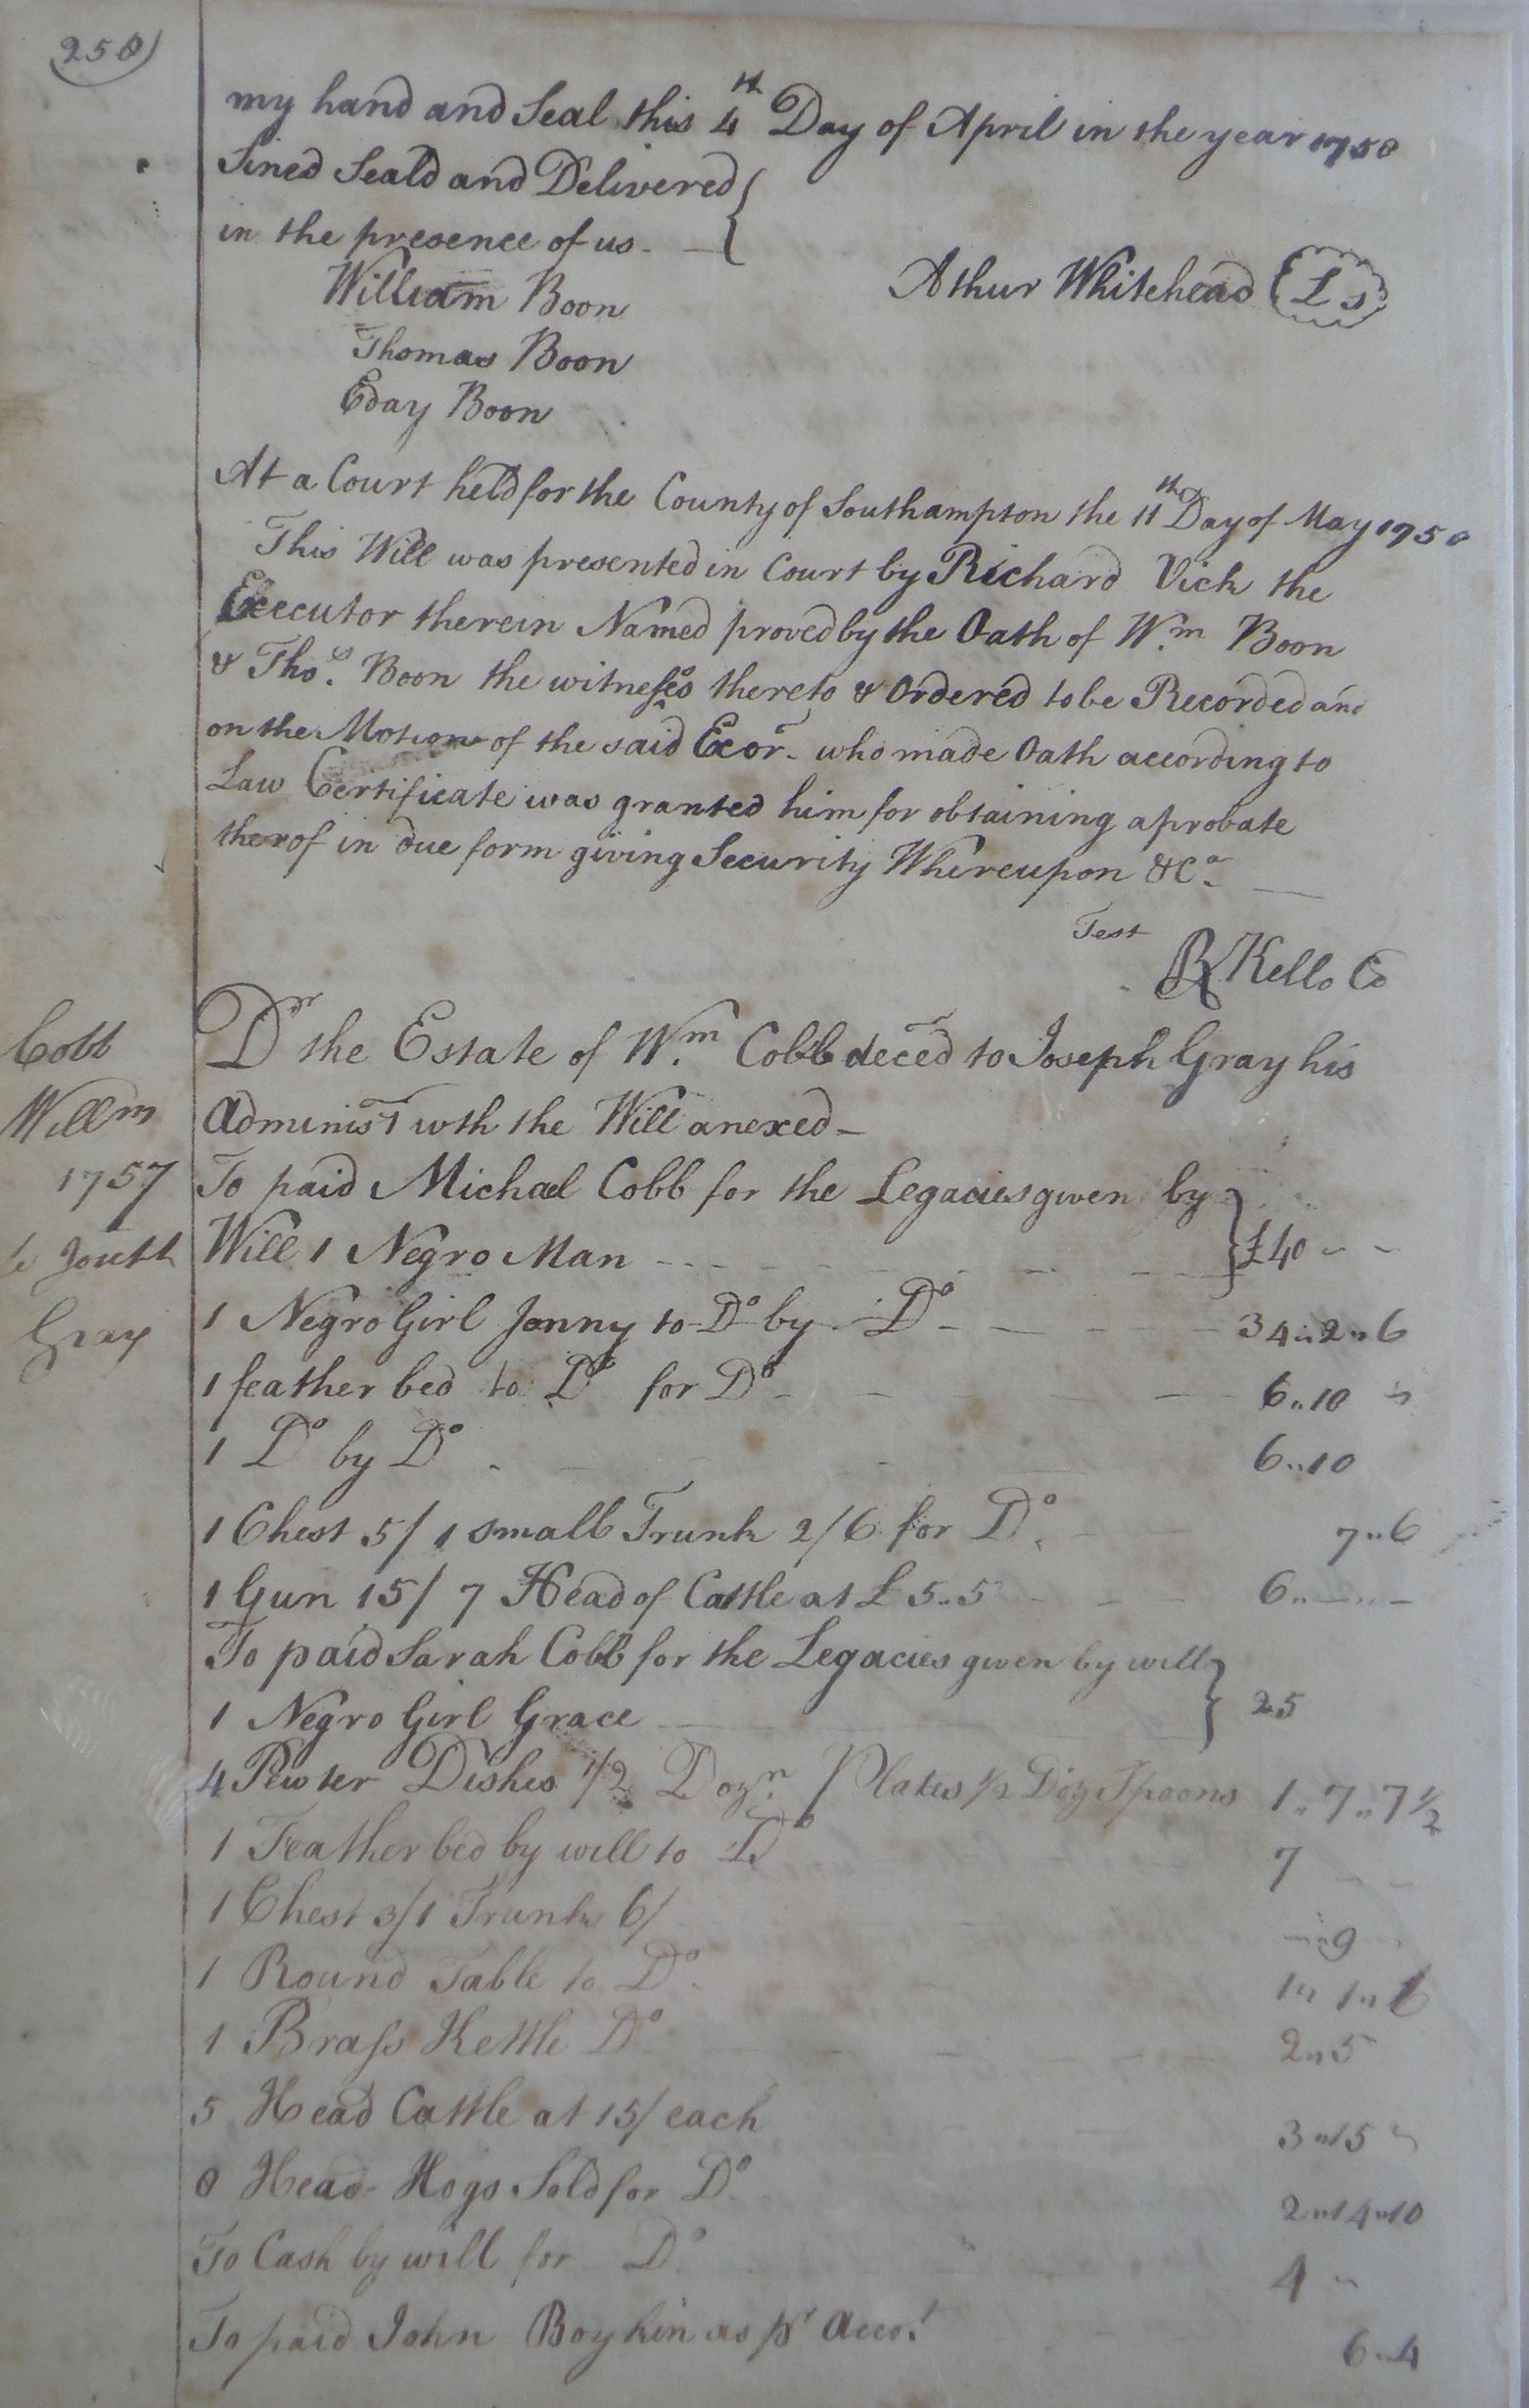 258)
my hand and Seal this 4th Day of April in the year 1758
Sined Seald and Delivered
in the presence of us
William Boon
Athur Whitehead (Ls)
Thomas Boon
Eday Boon
At a Court held for the County of Southampton the 11th Day of May 1758
This Will was presented in Court by Richard Vick the
Executor therein Named proved by the Oath of Wm. Boon
& Thos. Boon the witnesses thereto & Ordered to be Recorded and
on the Motion of the said Exor. who made Oath according to
Law Certificate was granted him for obtaining a probate
therof in due form giving Security Whereupon &Ca.
Test
R Kello
Cobb
Willm
1757
Gray
Dr the Estate of Wm. Cobb deced to Joseph Gray his
Administ wth the Will anexed
To paid Michael Cobb for the Legacies given by
Will 1 Negro Man £40
1 Negro Girl Jenny to Do by Do 34..2..6
1 feather bed to Do for Do 6..10
1 Do by Do 6..10
1 Chest 5/ 1 small Trunk 2/6 for Do 7..6
1 Gun 15/ 7 Head of Cattle at £5..5 6..—..—
To paid Sarah Cobb for the Legacies given by will
1 Negro Girl Grace 25
4 Pewter Dishes 1/2 Dozn. Plates 1/2 Doz Spoons 1..7..7 1/2
1 Feather bed by will to Do 7
1 Chest 3/ 1 Trunk 6/ 9
1 Round Table to Do 1..1..6
1 Brass Kettle Do 2..5
5 Head Cattle at 15/ each 3..15
8 Head Hogs Sold for Do 2..14..10
To Cash by will for Do 4
To paid John Boykin as pr Acct. 6..4